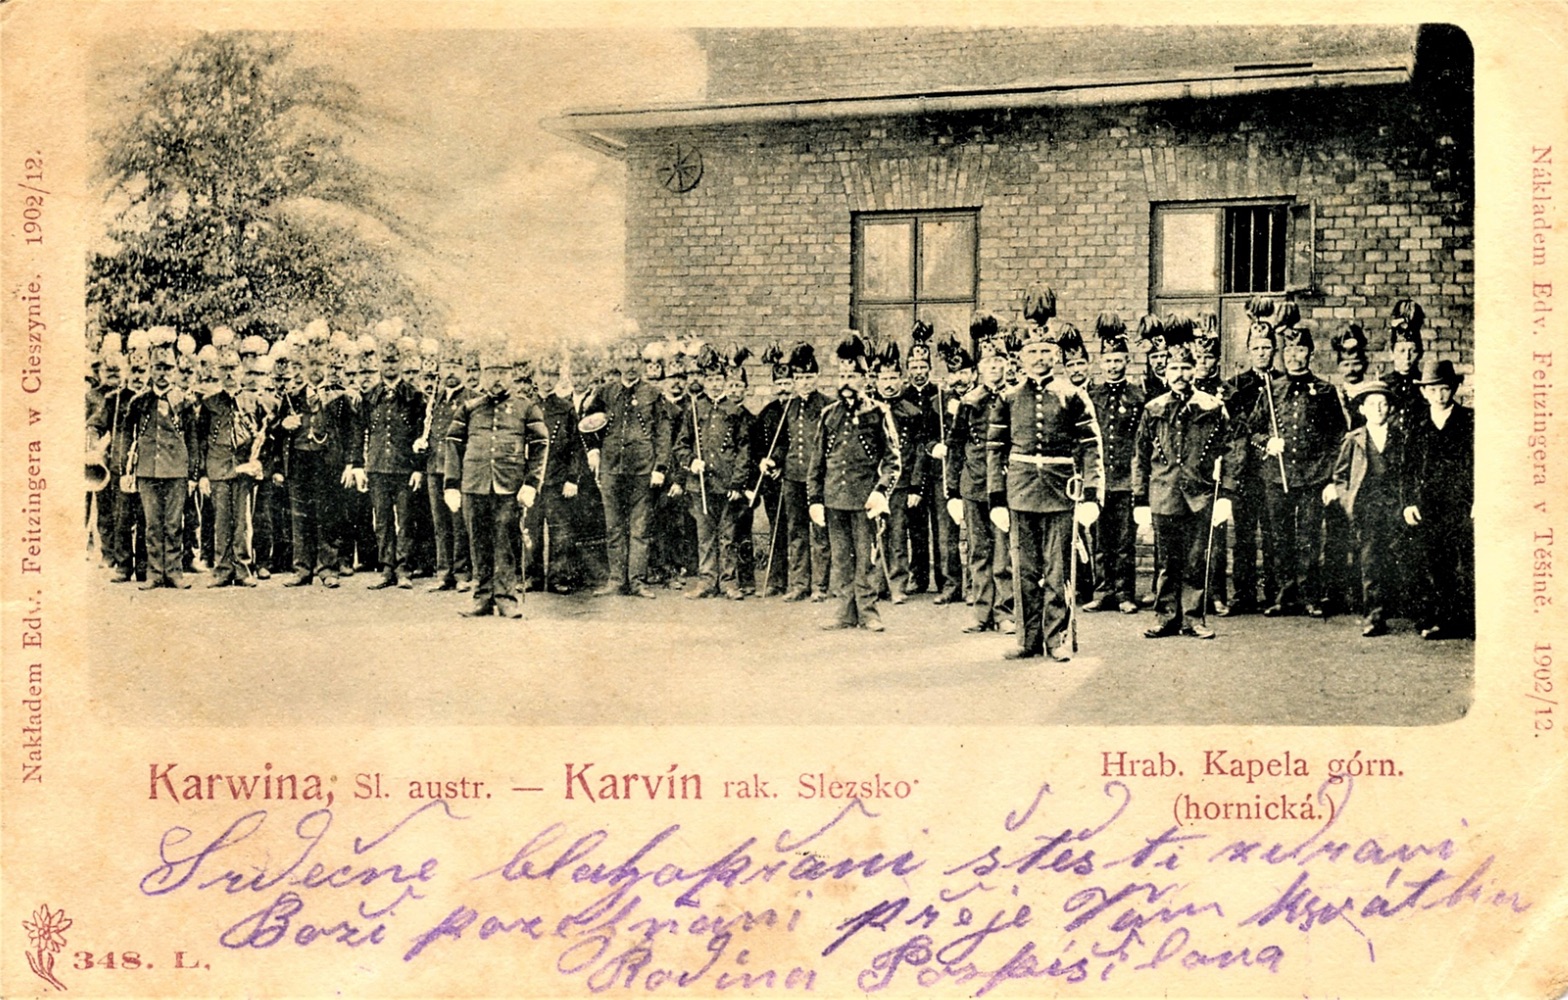 Nakładem Edw. Feitzingera w Cieszynie. 1902/12.
Nákladem Edv. Feitzingera v Těšině. 1902/12.
Karwina, Sl. austr. — Karvín rak. Slezsko.
Hrab. Kapela górn.
(hornická.)
Srdečne blahopřani štěsti zdravi
Boži pozehnani přeje Vám k svátku
Rodina Pospišilona
348. L.